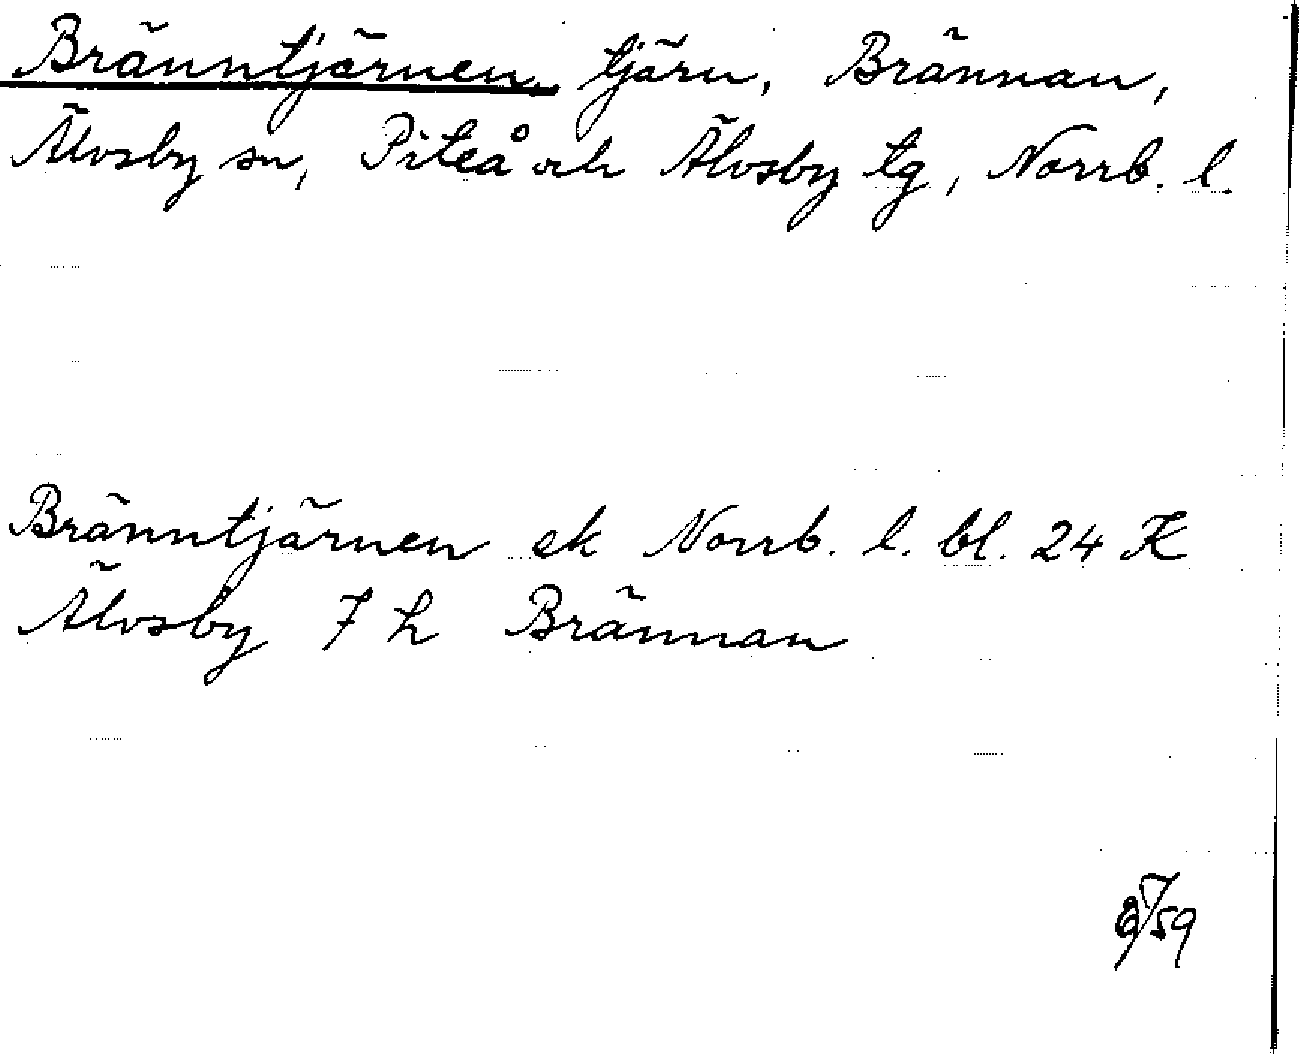 Bränntjärnen, tjärn, Brännan,
Älvsby sn, Piteå och Älvsby tg, Norrb. l.
Bränntjärnen ek Norrb. l. bl. 24 K
Älvsby 7 h Brännan